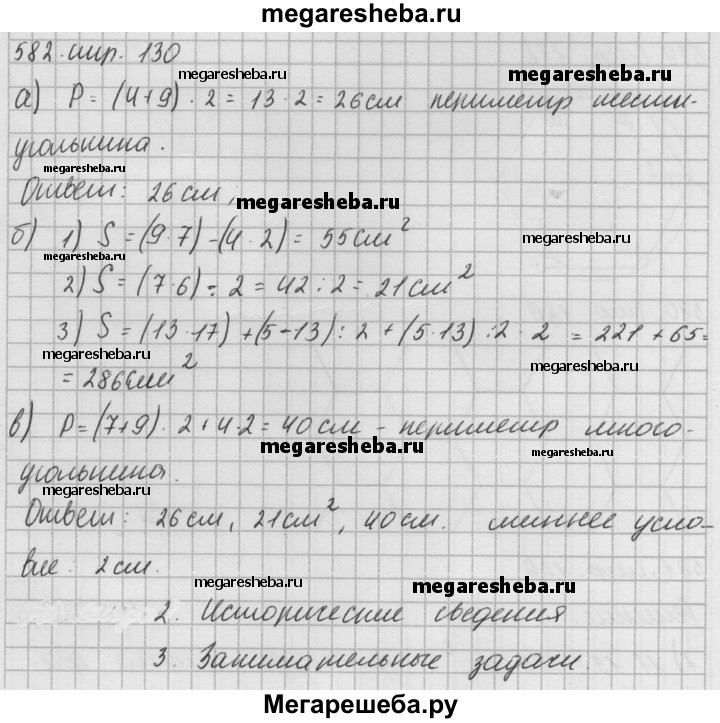 megaresheba.ru
582 стр. 130
megaresheba.ru megaresheba.ru
а) P = (4+9) · 2 = 13 · 2 = 26 см периметр шести-
megaresheba.ru
угольника.
megaresheba.ru
Ответ: 26 см,
megaresheba.ru
б) 1) S = (9·7) - (4·2) = 55 см²
megaresheba.ru
2) S = (7·6) : 2 = 42 : 2 = 21 см²
3) S = (13·17) + (5-13) : 2 + (5·13) : 2 · 2 = 221 + 65 =
megaresheba.ru megaresheba.ru
= 286 см²
в) P = (7+9) · 2 + 4·2 = 40 см - периметр много-
megaresheba.ru megaresheba.ru
угольника.
megaresheba.ru
Ответ: 26 см, 21 см², 40 см. усло-
вие: 2 см.
megaresheba.ru megaresheba.ru
2. Исторические сведения
3. Занимательные задачи.
megaresheba.ru megaresheba.ru
Мегарешеба.ру